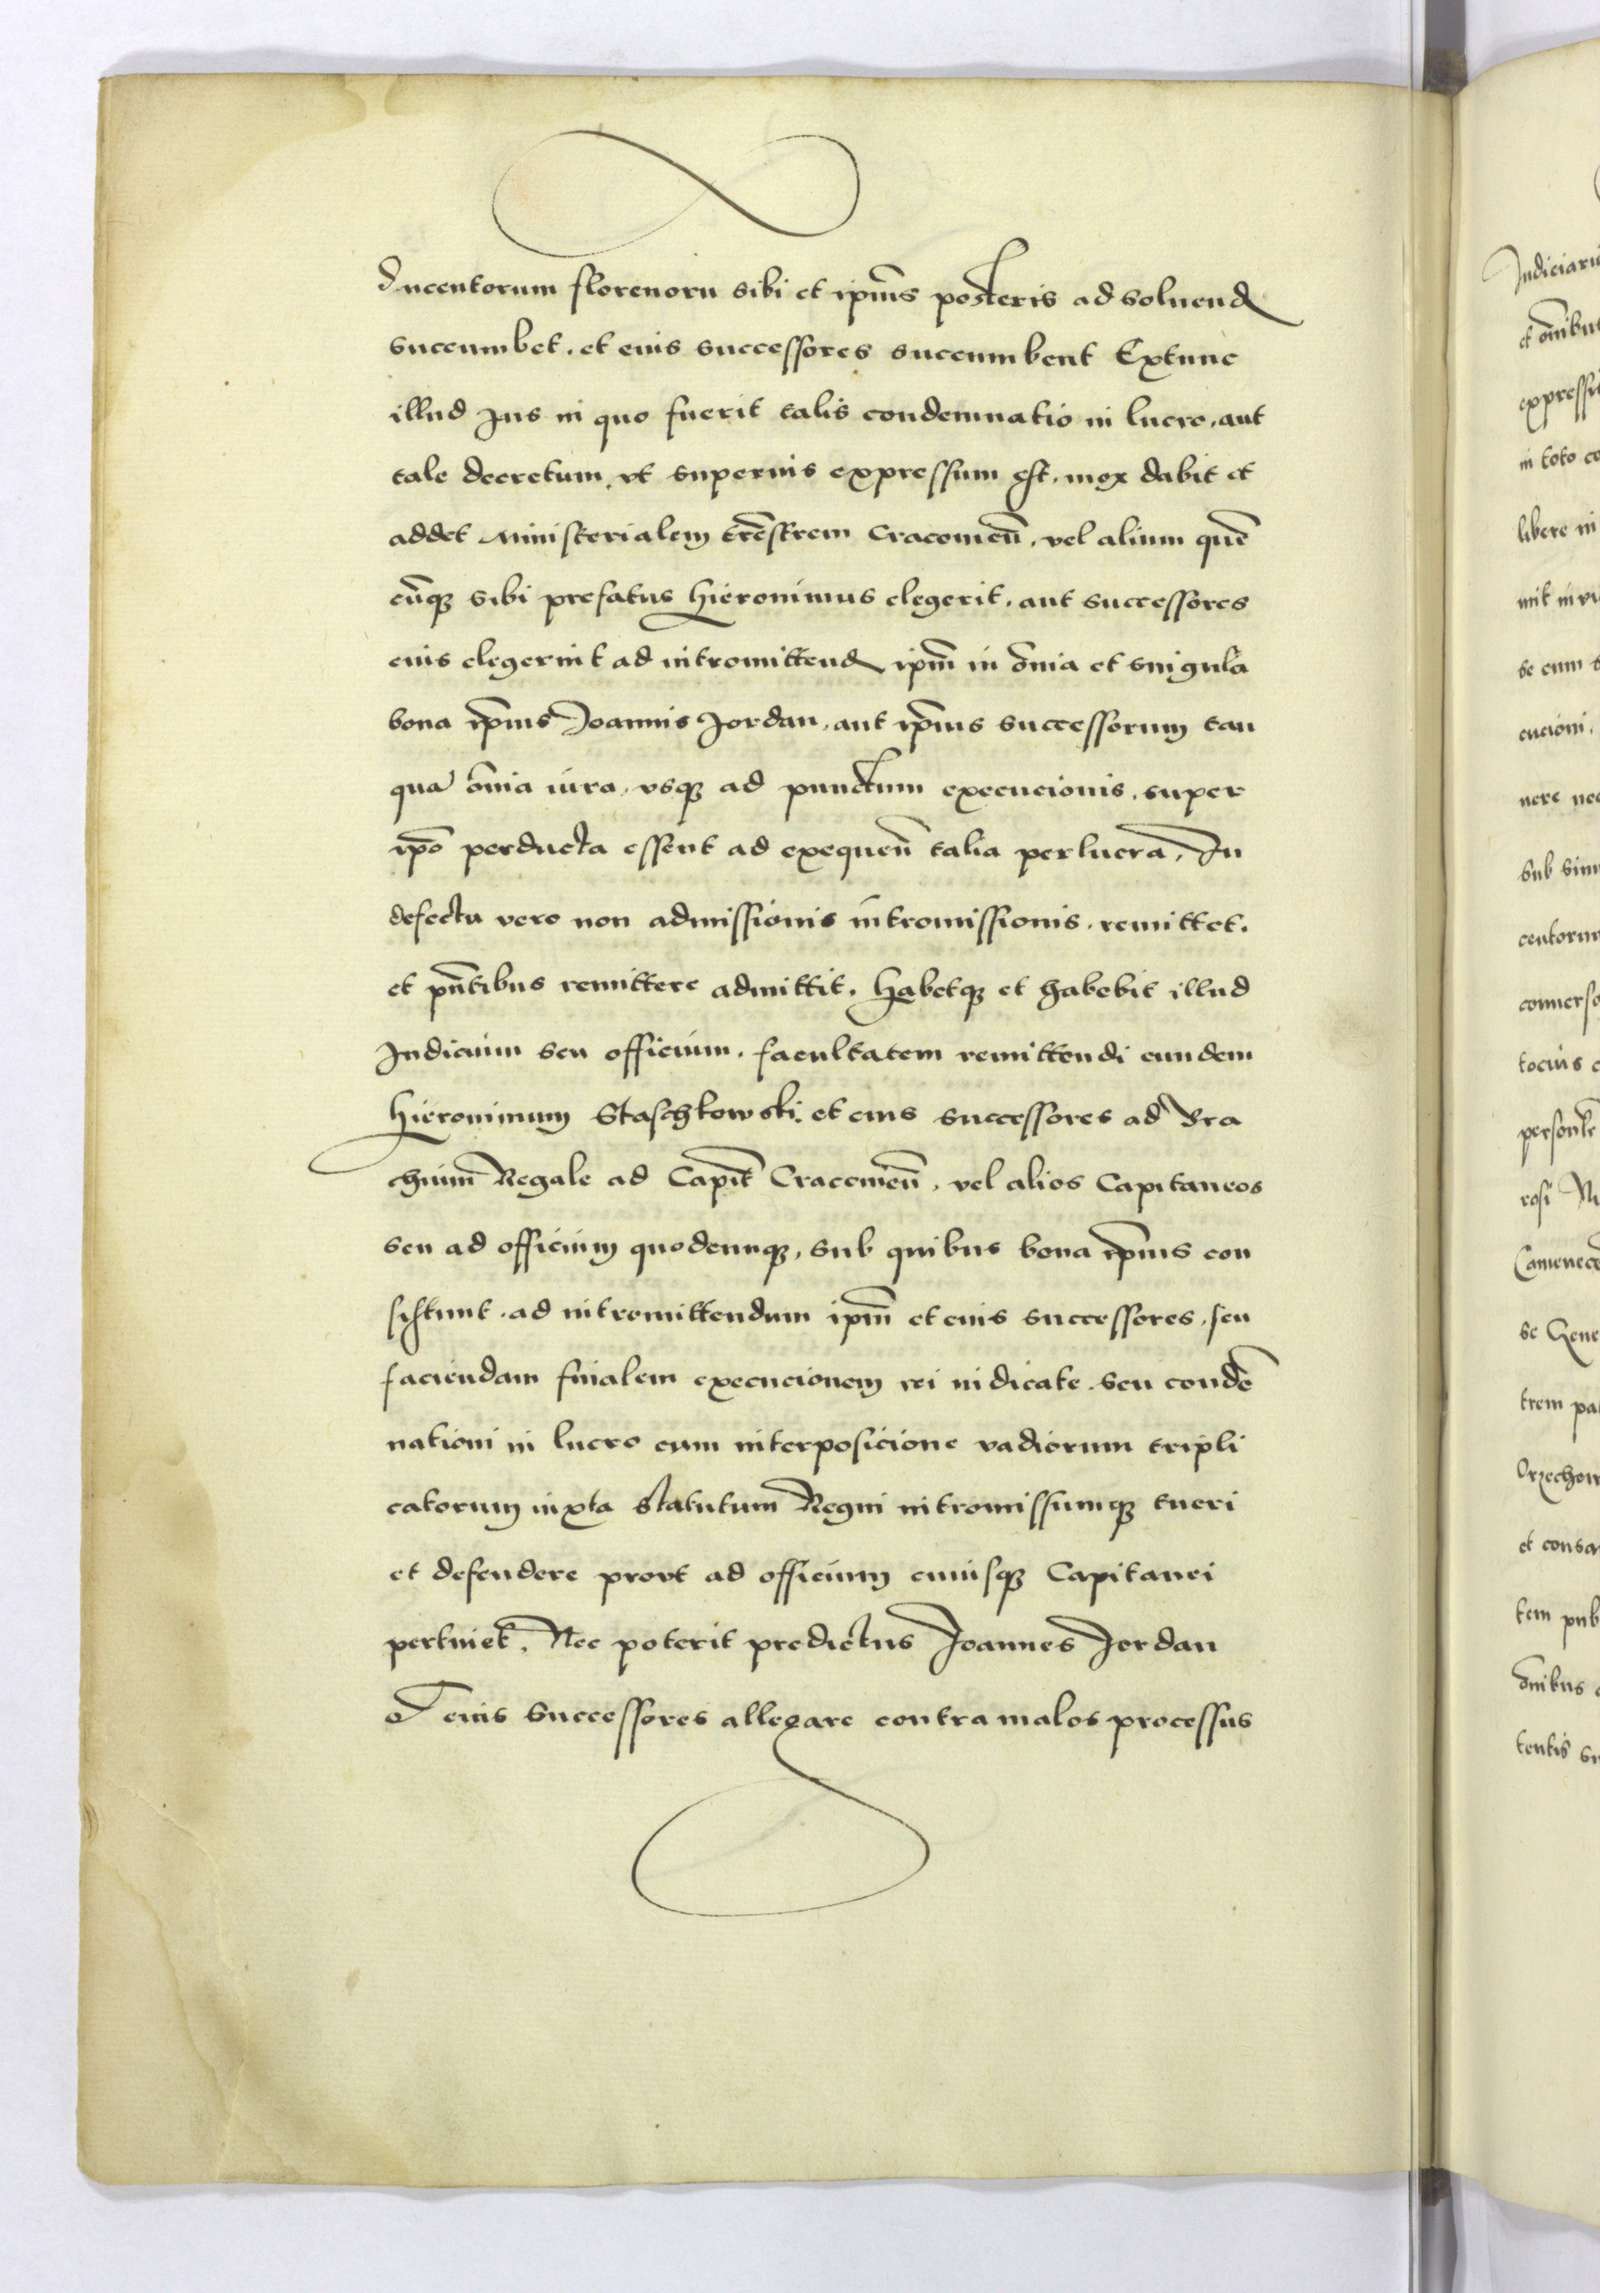 ducentorum florenoru sibi et ipius posteris ad soluend
succumbet. et eius successores succumbent Extunc
illud Jus in quo fuerit talis condemnatio in lucro, aut
tale decretum, vt superius expressum est. mox dabit et
addet Ministerialem trestrem Cracouien̄, vel alium quē
cūq3 sibi prefatus Hieronimus elegerit, aut successores
eius elegerint ad intromittend ipm̄ in ōnia et singula
bona ip̄ius Joannis Jordan, aut ip̄ius successorum tan
qua ōnia iura, vsq3 ad punctum execucionis, super
ip̄o perducta essent ad exequen̄ talia per lucra, In
defectu vero non admissionis intromissionis, remittet.
et pn̄tibus remittere admittit. Habetq3 et habebit illud
Judicium seu officium, facultatem remittendi eundem
Hieronimum Staschkowski, et eius successores ad Bra
chium Regale ad Capit̄ Cracouien̄, vel alios Capitaneos
seu ad officium quodcunq3, sub quibus bona ip̄ius con
sistunt. ad intromittendum ipm̄ et eius successores, seu
faciendam finalem execucionem rei iudicate. seu condē
nationi in lucro cum interposicione vadiorum tripli
catorum iuxta statutum Regni intromissumq3 tueri
et defendere prout ad officium cuiusq3 Capitanei
pertinet. Nec poterit predictus Joannes Jordan
et eius successores allegare contra malos processus
Judiciari
et ōnibus
expressi
in toto co
libere in
se cum
cucioni.
nere nec
centorum
conuerso
tocius
trem pa
et consa
tem pub
ōnibus
tentis